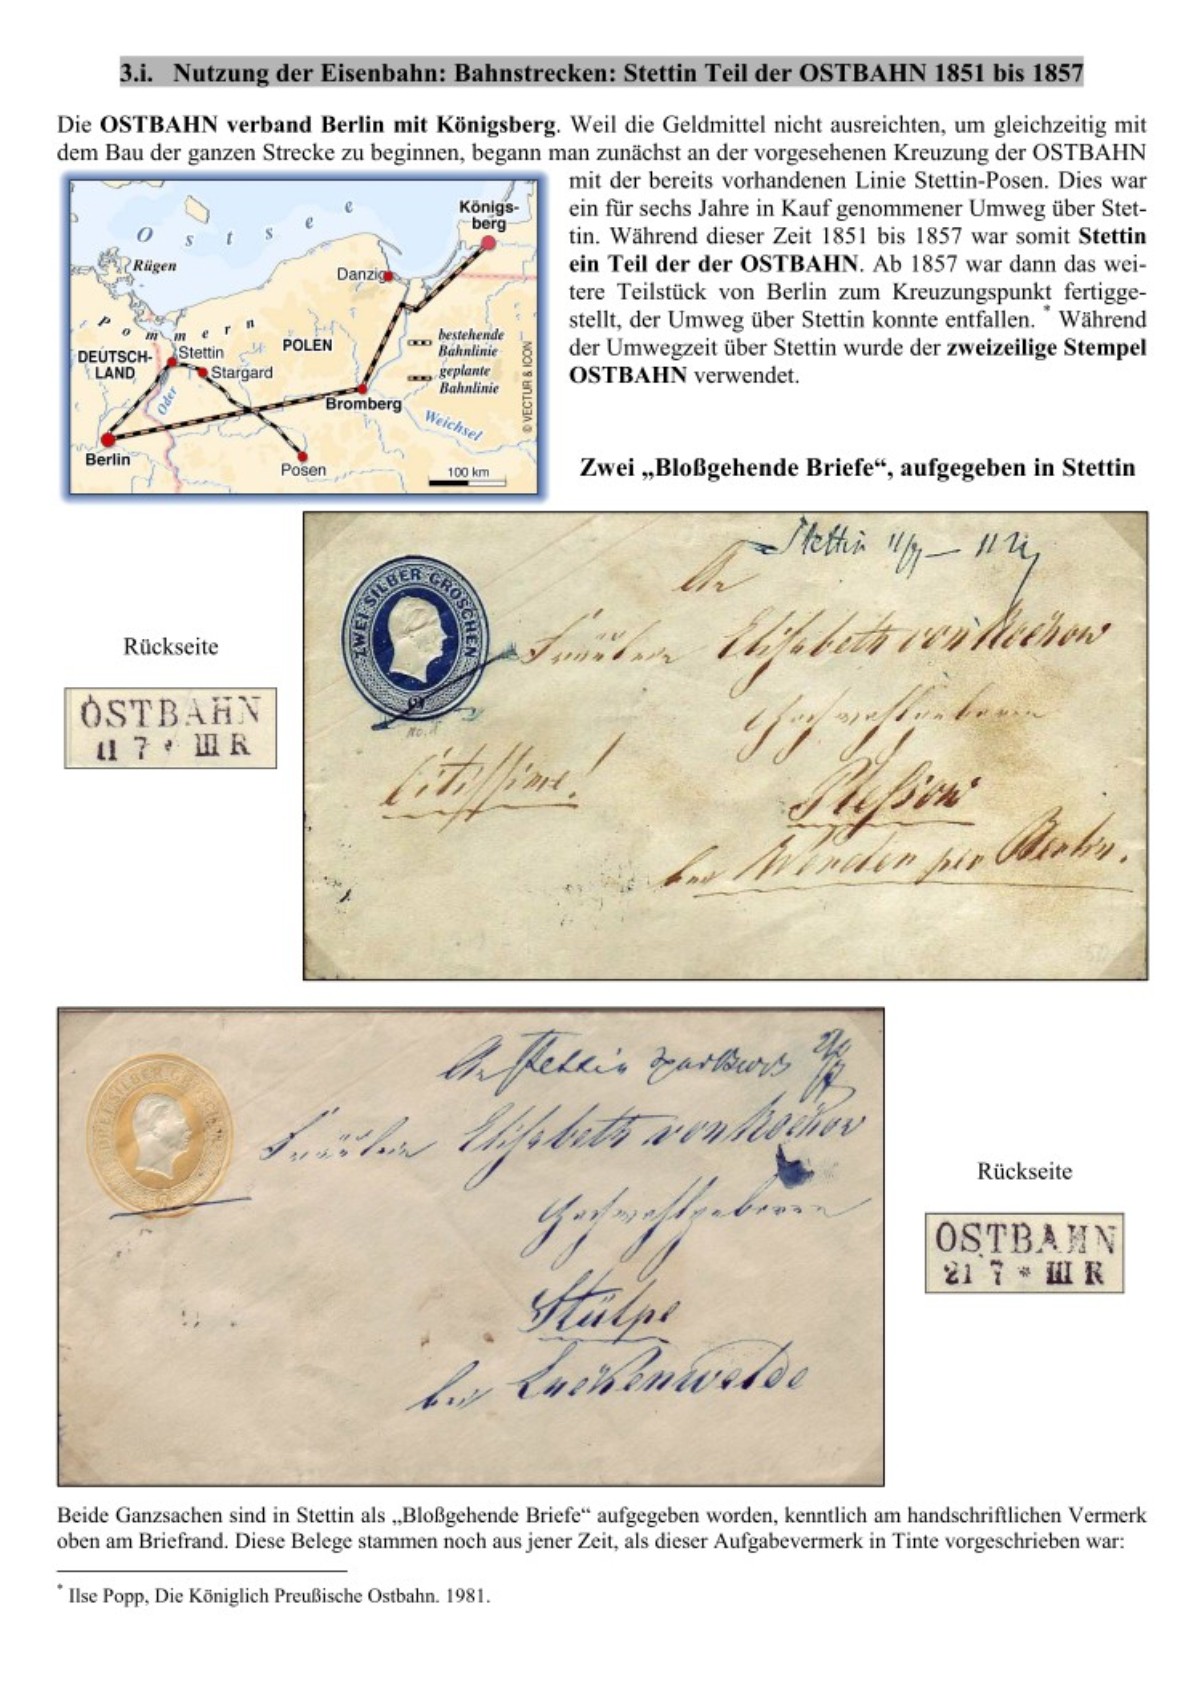 3.i. Nutzung der Eisenbahn: Bahnstrecken: Stettin Teil der OSTBAHN 1851 bis 1857
Die OSTBAHN verband Berlin mit Königsberg. Weil die Geldmittel nicht ausreichten, um gleichzeitig mit
dem Bau der ganzen Strecke zu beginnen, begann man zunächst an der vorgesehenen Kreuzung der OSTBAHN
mit der bereits vorhandenen Linie Stettin-Posen. Dies war
ein für sechs Jahre in Kauf genommener Umweg über Stet-
tin. Während dieser Zeit 1851 bis 1857 war somit Stettin
ein Teil der der OSTBAHN. Ab 1857 war dann das wei-
tere Teilstück von Berlin zum Kreuzungspunkt fertigge-
stellt, der Umweg über Stettin konnte entfallen. * Während
der Umwegzeit über Stettin wurde der zweizeilige Stempel
OSTBAHN verwendet.
Ostsee
Königs-
berg
Rügen
Danzig
Pommern
bestehende
Bahnlinie
geplante
Bahnlinie
DEUTSCH-
LAND
Stettin
POLEN
Stargard
Oder
Bromberg
Weichsel
Berlin
Posen
100 km
© VECTUR & ICON
Zwei „Bloßgehende Briefe“, aufgegeben in Stettin
Rückseite
OSTBAHN
11 7 * III R
ZWEI SILBER GROSCHEN
Stettin 11/7
An
Fräulein Elisabeth von Rochow
Hochwohlgeboren
Citissime!
Plessow
bei Werder per Berlin.
An Stettin
Fräulein Elisabeth von Rochow
Hochwohlgeboren
Stülpe
bei Luckenwalde
Rückseite
OSTBAHN
21 7 * III R
Beide Ganzsachen sind in Stettin als „Bloßgehende Briefe“ aufgegeben worden, kenntlich am handschriftlichen Vermerk
oben am Briefrand. Diese Belege stammen noch aus jener Zeit, als dieser Aufgabevermerk in Tinte vorgeschrieben war:
* Ilse Popp, Die Königlich Preußische Ostbahn. 1981.